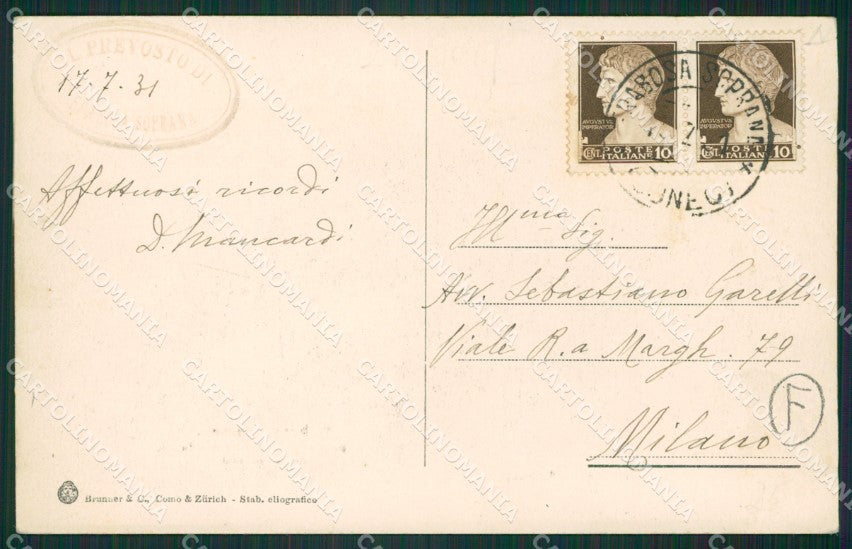 IL PREVOSTO DI
SOPRANA
17.7.31
Affettuosi ricordi
D. Mancardi
FRABOSA SOPRANA
(CUNEO)
AVGVSTVS
IMPERATOR
CENT. POSTE ITALIANE 10
AVGVSTVS
IMPERATOR
CENT. POSTE ITALIANE 10
Ill.ma Sig.
Avv. Sebastiano Garelli
Viale R.a Margh. 79
Milano
F
Brunner & C., Como & Zürich - Stab. eliografico
CARTOLINOMANIA